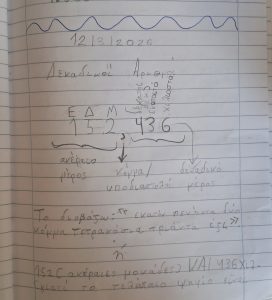 12/3/2026
Δεκαδικοί Αριθμοί
Ε Δ Μ
152,436
ακέραιο κόμμα/ δεκαδικό
μέρος υποδιαστολή μέρος
Το διαβάζω: "εκατόν πενήντα δύο
κόμμα τετρακόσια τριάντα έξι»
ή
152 (ακέραιες μονάδες) ΚΑΙ 436 χιλ.
το τελευταίο ψηφίο είναι